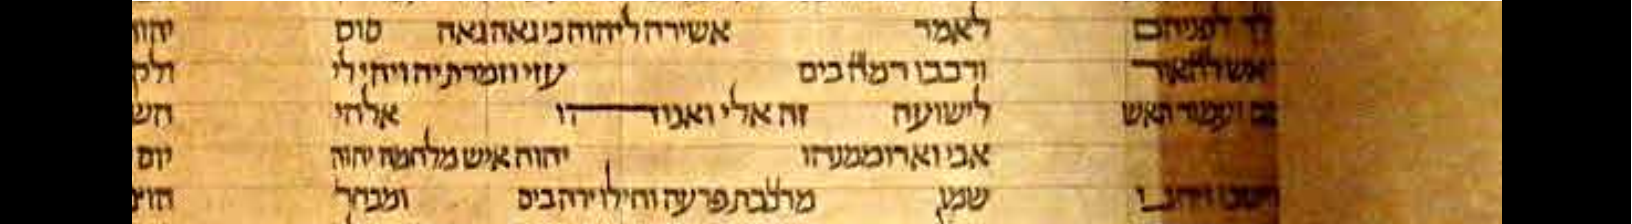 לאמר אשירה ליהוה כי גאה גאה סוס
ורכבו רמה בים עזי וזמרת יה ויהי לי
ועמוד האש לישועה זה אלי ואנוהו אלהי
אבי וארוממנהו יהוה איש מלחמה יהוה יום
שמו מרכבת פרעה וחילו ירה בים ומבחר